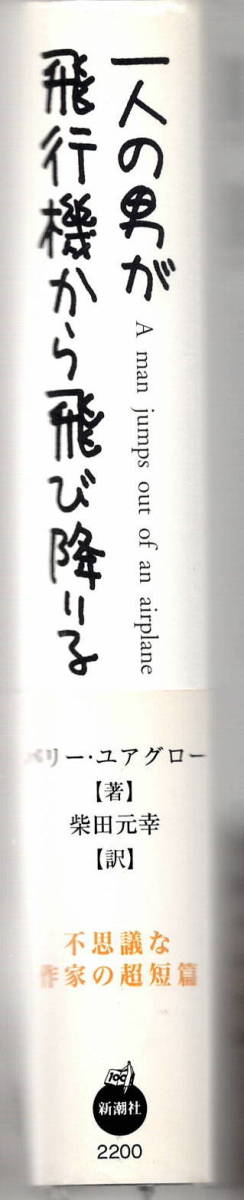 一人の男が
飛行機から飛び降りる
A man jumps out of an airplane
バリー・ユアグロー
【著】
柴田元幸
【訳】
不思議な
作家の超短篇
100
新潮社
2200